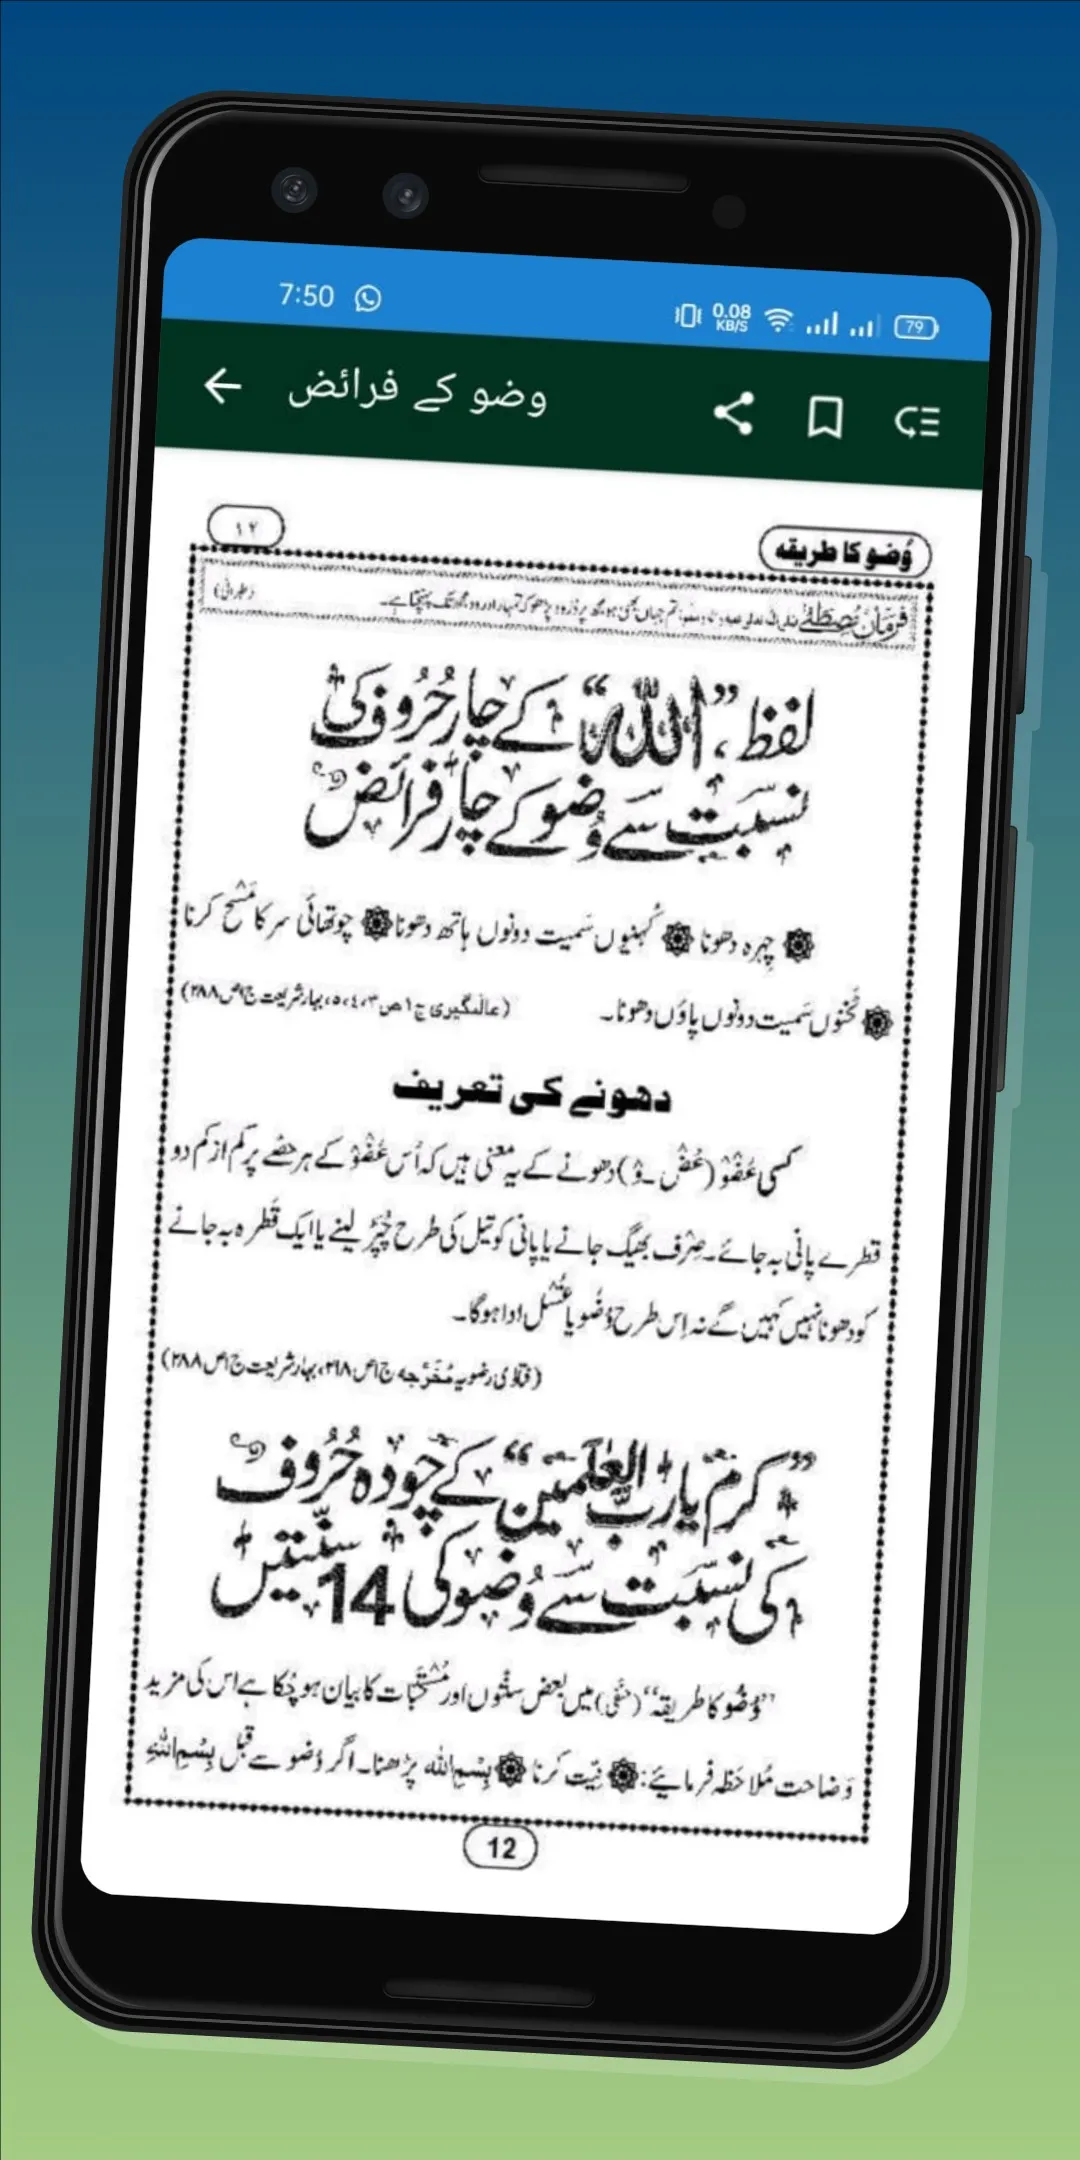 7:50
0.08
KB/S
79
وضو کے فرائض
وُضو کا طریقہ
۱۲
فرمانِ مصطفٰے تم جہاں بھی ہو مجھ پر دُرُود پڑھو کہ تمہارا دُرُود مجھ تک پہنچتا ہے۔ (طبرانی)
لفظ ”اللہ“ کے چار حُرُوف کی
نسبت سے وُضو کے چار فرائض
چہرہ دھونا کُہنیوں سَمیت دونوں ہاتھ دھونا چوتھائی سر کا مَسْح کرنا
ٹخنوں سَمیت دونوں پاؤں دھونا۔ (عالمگیری ج۱ ص۳،٤،۵، بہار شریعت ج۱ ص۲۸۸)
دھونے کی تعریف
کسی عُضْوْ (عُضْ۔وْ) دھونے کے یہ معنی ہیں کہ اُس عُضْوْ کے ہر حصّے پر کم از کم دو
قطرے پانی بہ جائے۔ صِرْف بھیگ جانے یا پانی کو تیل کی طرح چُپَڑ لینے یا ایک قَطرہ بہ جانے
کو دھونا نہیں کہیں گے نہ اِس طرح وُضُو یا غُسْل ادا ہوگا۔
(فتاوٰی رضویہ مُخَرَّجہ ج۱ ص۲۱۸، بہار شریعت ج۱ ص۲۸۸)
”کرم یا ربَّ العٰلمین“ کے چودہ حُرُوف
کی نسبت سے وُضو کی 14 سنّتیں
”وُضُو کا طریقہ“ (حنفی) میں بعض سنّتوں اور مُسْتَحَبّات کا بیان ہو چُکا ہے اس کی مزید
وَضاحت مُلاحَظہ فرمائیے: نیّت کرنا بِسْمِ اللہ پڑھنا۔ اگر وُضو سے قَبل بِسْمِ اللہِ
12